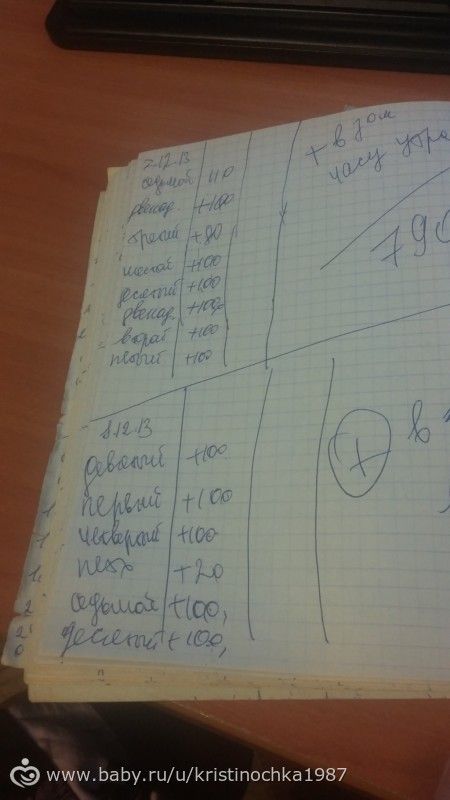 7.12.13
седьмой 110
двенад. +100
третий +80
шестой +100
десятый +100
двенад. +100
второй +100
первый +100
+ в
часу утра
790
8.12.13
девятый +100
первый +100
четвертый +100
+20
седьмой +100,
десятый +100,
+ в
www.baby.ru/u/kristinochka1987